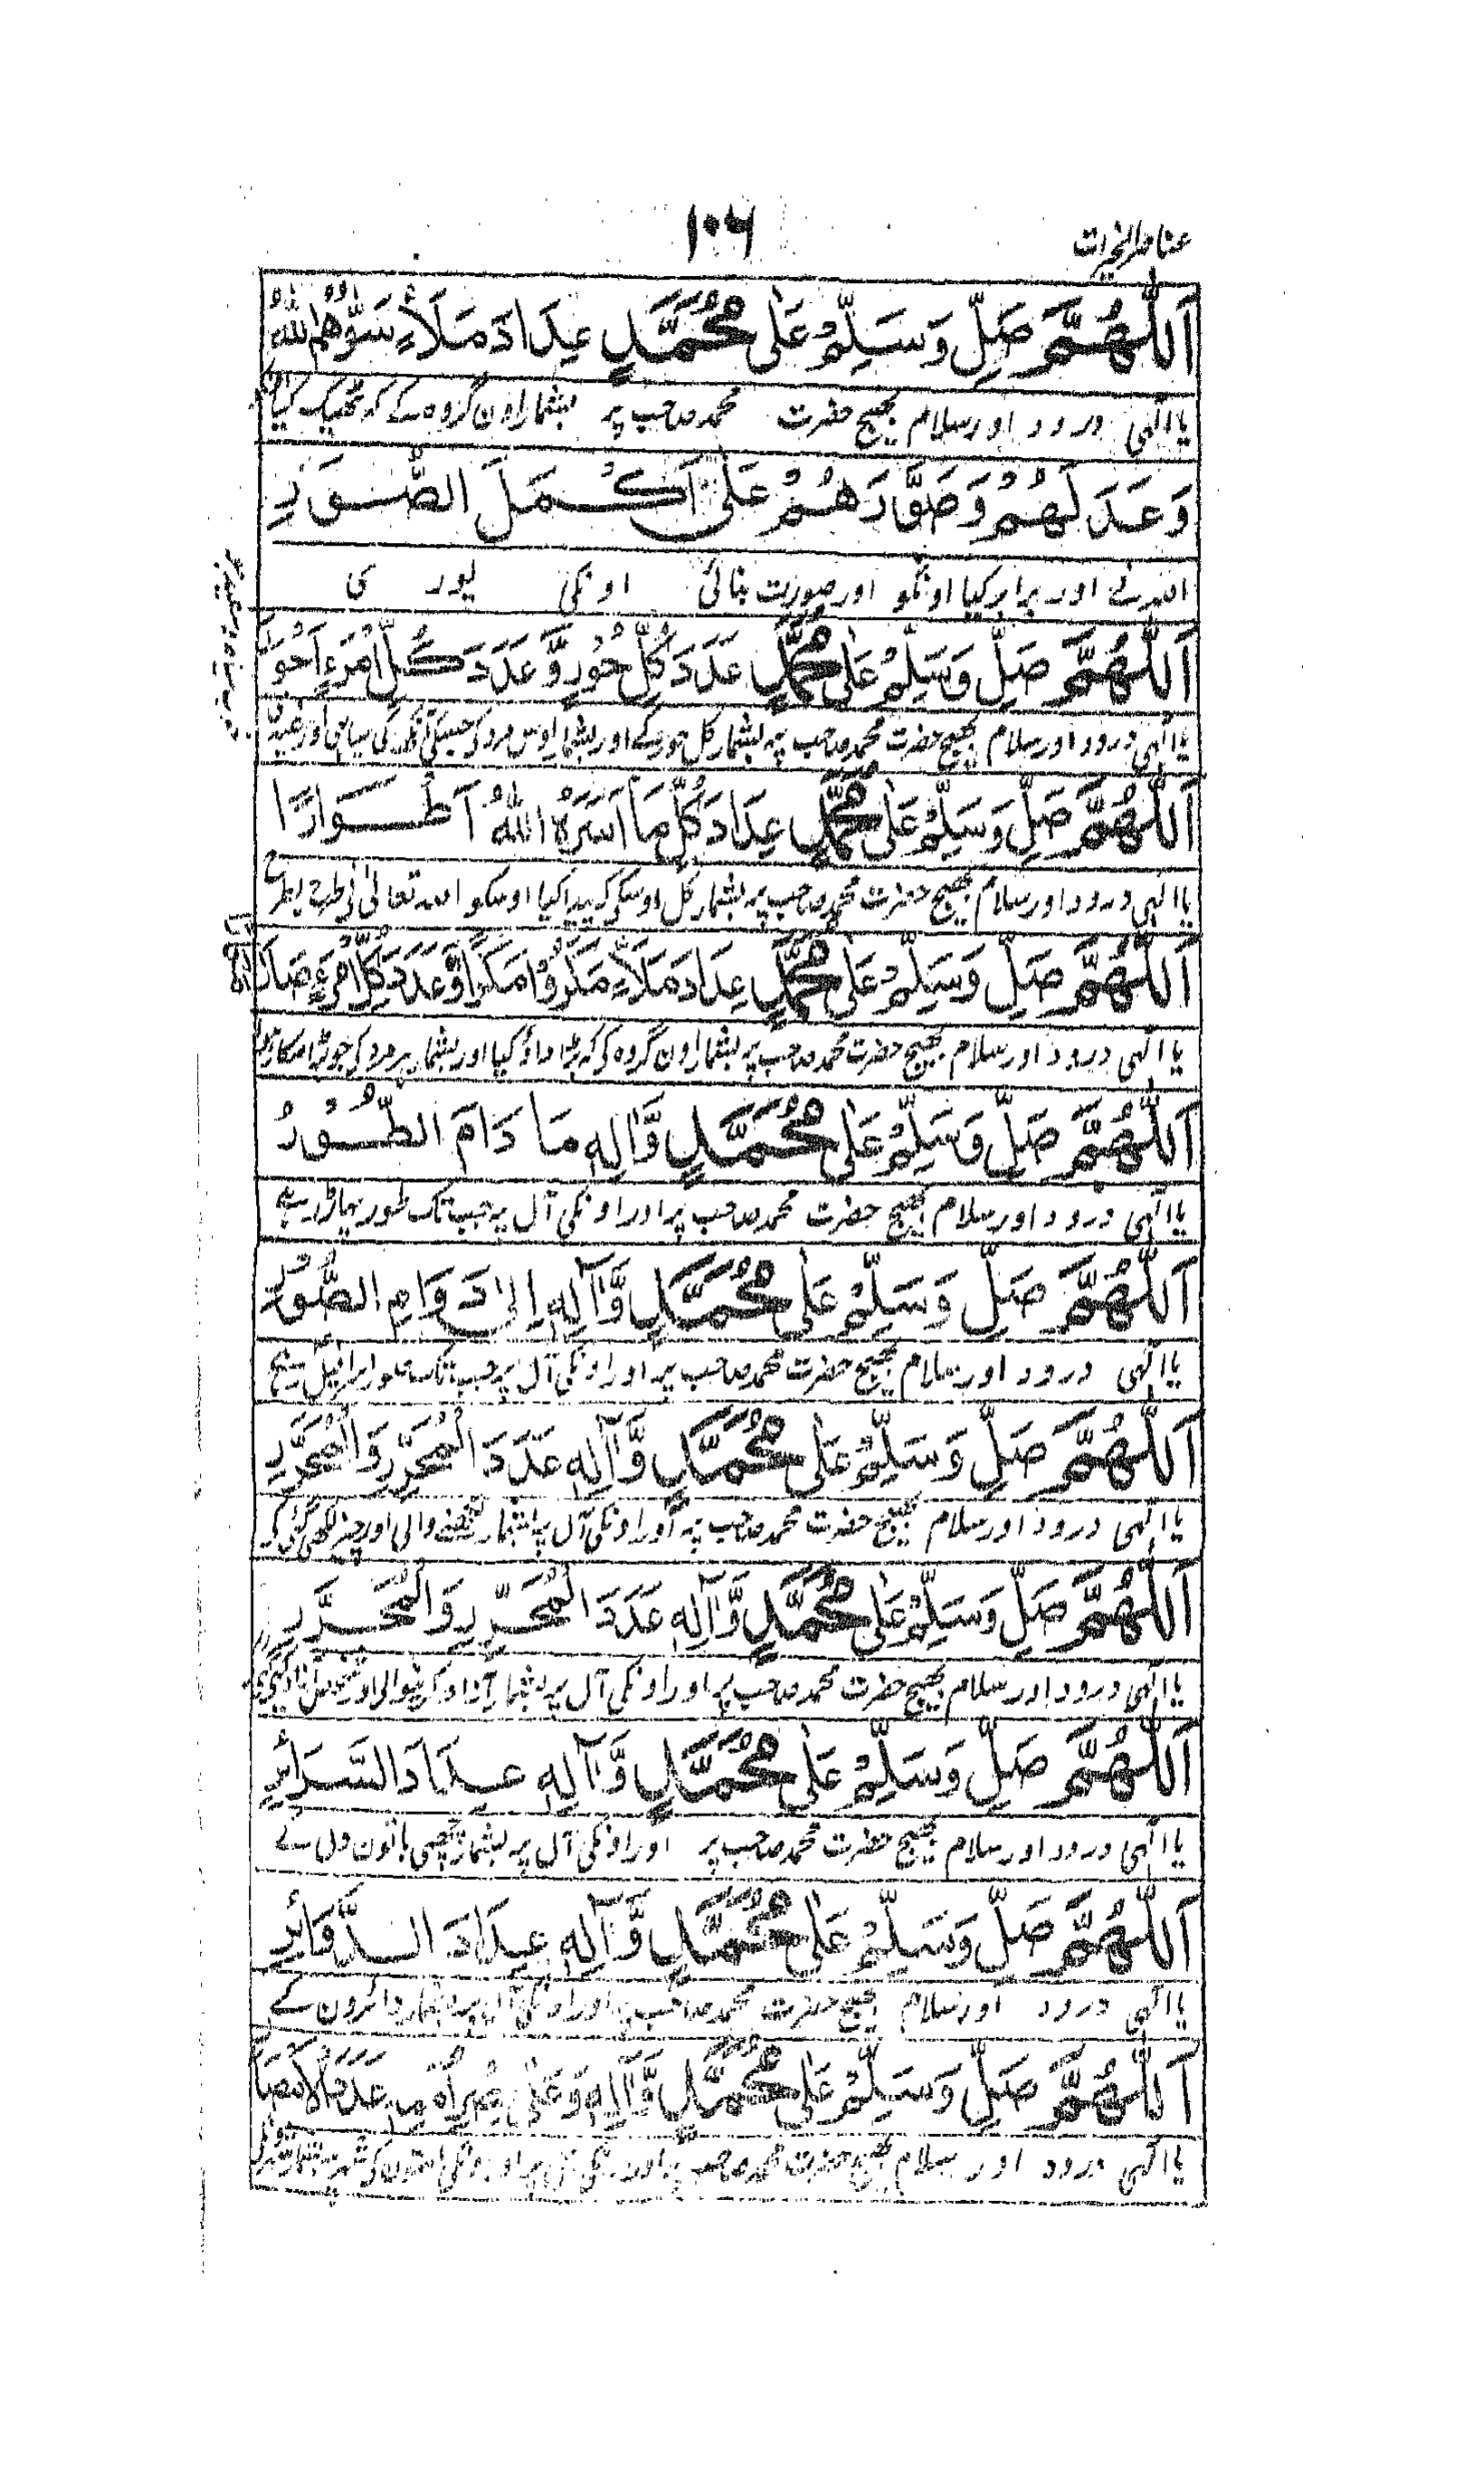 عناصر الخیرات
۱۰۶
اَللّٰهُمَّ صَلِّ وَسَلِّمْ عَلٰى مُحَمَّدٍ عِدَادَ مَلَأٍ سَوّٰهُمُ اللّٰهُ
یا الٰہی درود اور سلام بھیج حضرت محمد صاحب پر بشمار اون گروہ کے کہ ٹھیک کیا
وَعَدَلَهُمْ وَصَوَّرَهُمْ عَلٰى اَكْمَلَ الصُّوَرِ
اللہ نے اور برابر کیا اونکو اور صورت بنائی اونکی پوری
اَللّٰهُمَّ صَلِّ وَسَلِّمْ عَلٰى مُحَمَّدٍ عَدَدَ كُلِّ حُوْرٍ وَّعَدَدَ كُلِّ امْرَءٍ اَحْوَرَ
یا الٰہی درود اور سلام بھیج حضرت محمد صاحب پر بشمار کل حور کے اور بشمار اوس مرد کی جسکی آنکھ کی سیاہی اور
اَللّٰهُمَّ صَلِّ وَسَلِّمْ عَلٰى مُحَمَّدٍ عِدَادَ كُلِّ مَا اَسَرَهُ اللّٰهُ اَطْوَارًا
یا الٰہی درود اور سلام بھیج حضرت محمد صاحب پر بشمار کل اوسکی کہ پیدا کیا اوسکو اللہ تعالیٰ نی طرح بطرح
اَللّٰهُمَّ صَلِّ وَسَلِّمْ عَلٰى مُحَمَّدٍ عِدَادَ مَلَأٍ مَكَرُوْا مَكْرًا وَّعَدَدَ كُلِّ امْرَءٍ
یا الٰہی درود اور سلام بھیج حضرت محمد صاحب پر بشمار اون گروہ کی کہ بڑا داؤ کیا اور بشمار ہر مرد کی جو
اَللّٰهُمَّ صَلِّ وَسَلِّمْ عَلٰى مُحَمَّدٍ وَّاٰلِهٖ مَا دَامَ الطُّوْرُ
یا الٰہی درود اور سلام بھیج حضرت محمد صاحب پر اور اونکی آل پر جب تک طور پہاڑ رہے
اَللّٰهُمَّ صَلِّ وَسَلِّمْ عَلٰى مُحَمَّدٍ وَّاٰلِهٖ اِلٰى دَوَامِ الصُّوْرِ
یا الٰہی درود اور سلام بھیج حضرت محمد صاحب پر اور اونکی آل پر جب تک صور اسرافیل
اَللّٰهُمَّ صَلِّ وَسَلِّمْ عَلٰى مُحَمَّدٍ وَّاٰلِهٖ عَدَدَ الْمُحَرِّرِ وَالْمُحَرَّرِ
یا الٰہی درود اور سلام بھیج حضرت محمد صاحب پر اور اونکی آل پر بشمار لکھنے والی اور چیز لکھی گئی کی
اَللّٰهُمَّ صَلِّ وَسَلِّمْ عَلٰى مُحَمَّدٍ وَّاٰلِهٖ عَدَدَ الْمُحَرِّرِ وَالْمُحَرَّرِ
یا الٰہی درود اور سلام بھیج حضرت محمد صاحب پر اور اونکی آل پر بشمار آزاد کرنیوالی اور
اَللّٰهُمَّ صَلِّ وَسَلِّمْ عَلٰى مُحَمَّدٍ وَّاٰلِهٖ عِدَادَ السَّرَائِرِ
یا الٰہی درود اور سلام بھیج حضرت محمد صاحب پر اور اونکی آل پر بشمار چھپی باتون دل کے
اَللّٰهُمَّ صَلِّ وَسَلِّمْ عَلٰى مُحَمَّدٍ وَّاٰلِهٖ عِدَادَ الدَّوَائِرِ
یا الٰہی درود اور سلام بھیج حضرت محمد صاحب پر اور اونکی آل پر بشمار دائرون کے
اَللّٰهُمَّ صَلِّ وَسَلِّمْ عَلٰى مُحَمَّدٍ وَّاٰلِهٖ وَعَلٰى عَدَدَ الْاَمْصَارِ
یا الٰہی درود اور سلام بھیج حضرت محمد صاحب